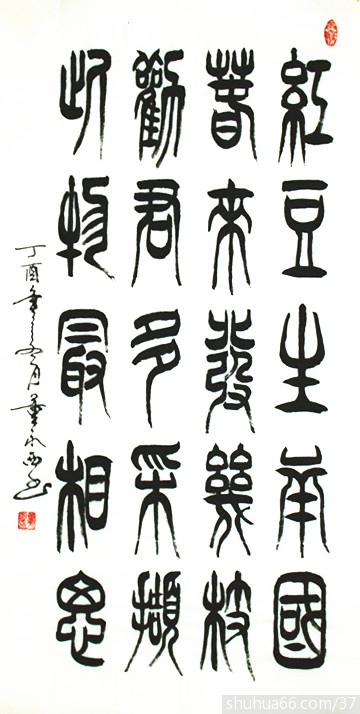 紅豆生南國
春來發幾枝
勸君多采擷
此物最相思
丁酉年
shuhua66.com/37